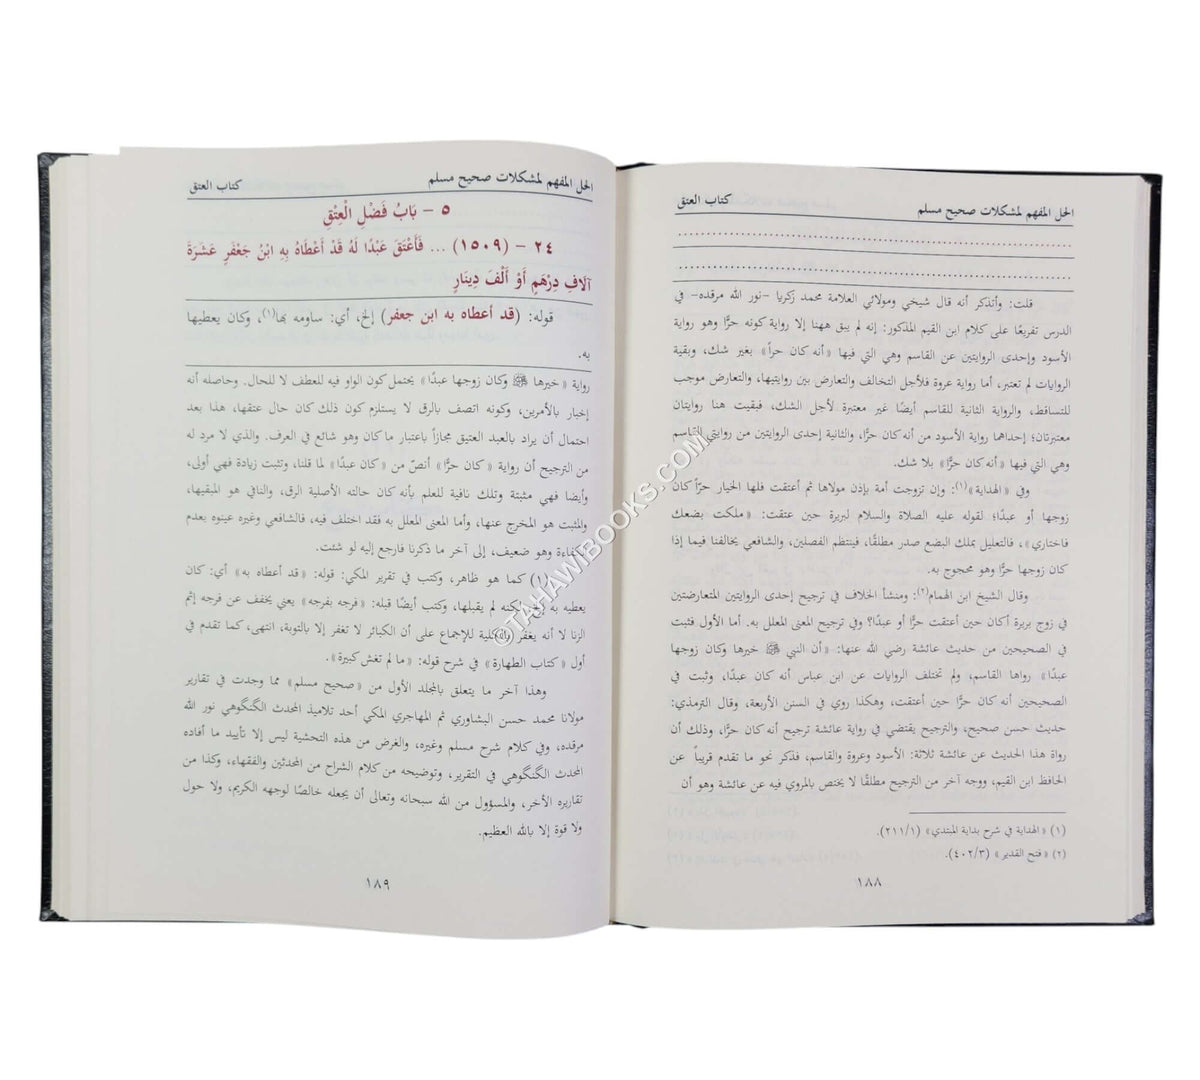 الحل المفهم لمشكلات صحيح مسلم
كتاب العتق
قلت: وأتذكر أنه قال شيخي ومولائي العلامة محمد زكريا -نور الله مرقده- في
الدرس تفريعًا على كلام ابن القيم المذكور: إنه لم يبق ههنا إلا رواية كونه حرًّا وهو رواية
الأسود وإحدى الروايتين عن القاسم وهي التي فيها «أنه كان حراً» بغير شك، وبقية
الروايات لم تعتبر، أما رواية عروة فلأجل التخالف والتعارض بين روايتيها، والتعارض موجب
للتساقط، والرواية الثانية للقاسم أيضًا غير معتبرة لأجل الشك، فبقيت هنا روايتان
معتبرتان؛ إحداهما رواية الأسود من أنه كان حرًّا، والثانية إحدى الروايتين من روايتي القاسم
وهي التي فيها «أنه كان حرًّا» بلا شك.
وفي «الهداية»(١): وإن تزوجت أمة بإذن مولاها ثم أعتقت فلها الخيار حرًّا كان
زوجها أو عبدًا؛ لقوله عليه الصلاة والسلام لبريرة حين عتقت: «ملكت بضعك
فاختاري»، فالتعليل بملك البضع صدر مطلقًا، فينتظم الفصلين، والشافعي يخالفنا فيما إذا
كان زوجها حرًّا وهو محجوج به.
وقال الشيخ ابن الهمام(٢): ومنشأ الخلاف في ترجيح إحدى الروايتين المتعارضتين
في زوج بريرة أكان حين أعتقت حرًّا أو عبدًا؟ وفي ترجيح المعنى المعلل به. أما الأول فثبت
في الصحيحين من حديث عائشة رضي الله عنها: «أن النبي ﷺ خيرها وكان زوجها
عبدًا» رواها القاسم، ولم تختلف الروايات عن ابن عباس أنه كان عبدًا، وثبت في
الصحيحين أنه كان حرًّا حين أعتقت، وهكذا روي في السنن الأربعة، وقال الترمذي:
حديث حسن صحيح، والترجيح يقتضي في رواية عائشة ترجيح أنه كان حرًّا، وذلك أن
رواة هذا الحديث عن عائشة ثلاثة: الأسود وعروة والقاسم، فذكر نحو ما تقدم قريباً عن
الحافظ ابن القيم، ووجه آخر من الترجيح مطلقًا لا يختص بالمروي فيه عن عائشة وهو أن
(١) «الهداية في شرح بداية المبتدي» (٢١١/١).
(٢) «فتح القدير» (٤٠٢/٣).
١٨٨
الحل المفهم لمشكلات صحيح مسلم
كتاب العتق
٥ - بَابُ فَضْلِ الْعِتْقِ
٢٤ - (١٥٠٩) ... فَأَعْتَقَ عَبْدًا لَهُ قَدْ أَعْطَاهُ بِهِ ابْنُ جَعْفَرٍ عَشَرَةَ
آلَافِ دِرْهَمٍ أَوْ أَلْفَ دِينَارٍ
قوله: (قد أعطاه به ابن جعفر) إلخ، أي: ساومه بها(١)، وكان يعطيها
به.
رواية «خيرها ﷺ وكان زوجها عبدًا» يحتمل كون الواو فيه للعطف لا للحال. وحاصله أنه
إخبار بالأمرين، وكونه اتصف بالرق لا يستلزم كون ذلك كان حال عتقها، هذا بعد
احتمال أن يراد بالعبد العتيق مجازاً باعتبار ما كان وهو شائع في العرف. والذي لا مرد له
من الترجيح أن رواية «كان حرًّا» أنصّ من «كان عبدًا» لما قلنا، وتثبت زيادة فهي أولى،
وأيضا فهي مثبتة وتلك نافية للعلم بأنه كان حالته الأصلية الرق، والنافي هو المبقيها،
والمثبت هو المخرج عنها، وأما المعنى المعلل به فقد اختلف فيه، فالشافعي وغيره عينوه بعدم
الكفاءة وهو ضعيف، إلى آخر ما ذكرنا فارجع إليه لو شئت.
(١) كما هو ظاهر، وكتب في تقرير المكي: قوله: «قد أعطاه به» أي: كان
يعطيه به لكنه لم يقبلها، وكتب أيضًا قبله: «فرجه بفرجه» يعني يخفف عن فرجه إثم
الزنا لا أنه يغفر بالكلية للإجماع على أن الكبائر لا تغفر إلا بالتوبة، انتهى، كما تقدم في
أول «كتاب الطهارة» في شرح قوله: «ما لم تغش كبيرة».
وهذا آخر ما يتعلق بالمجلد الأول من «صحيح مسلم» مما وجدت في تقارير
مولانا محمد حسن البشاوري ثم المهاجري المكي أحد تلاميذ المحدث الگنگوهي نور الله
مرقده، وفي كلام شرح مسلم وغيره، والغرض من هذه التحشية ليس إلا تأييد ما أفاده
المحدث الگنگوهي في التقرير، وتوضيحه من كلام الشراح من المحدثين والفقهاء، وكذا من
تقاريره الأخر، والمسؤول من الله سبحانه وتعالى أن يجعله خالصًا لوجهه الكريم، ولا حول
ولا قوة إلا بالله العظيم.
١٨٩
©TAHAWIBOOKS.COM